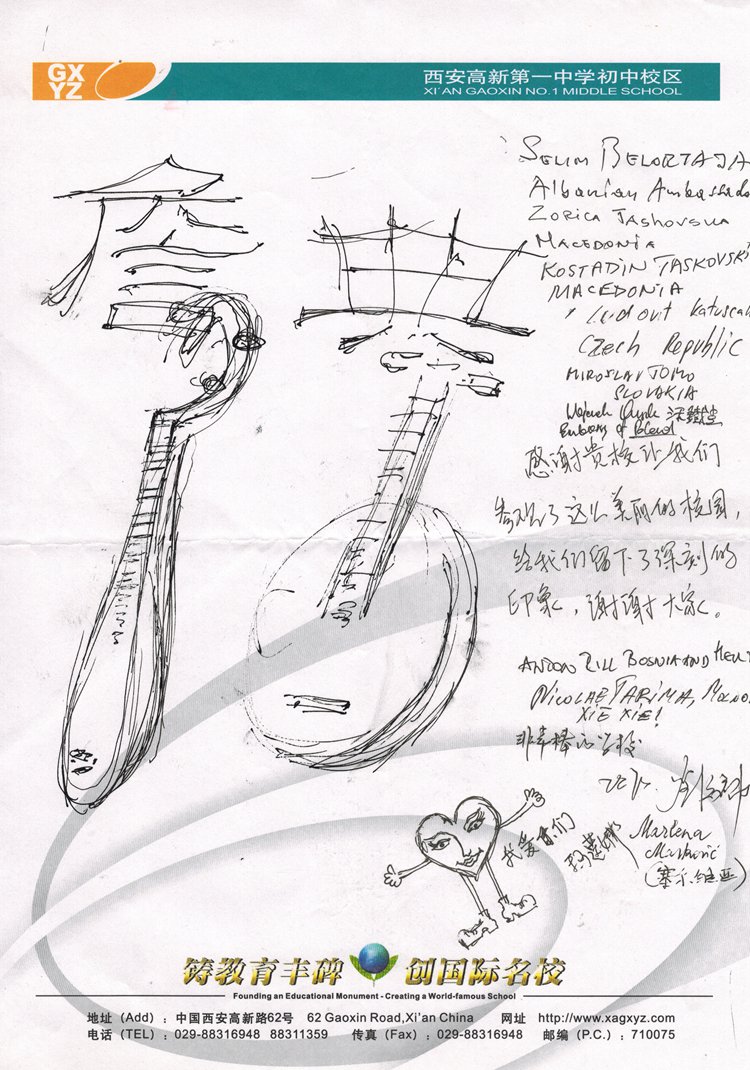 GX
YZ
西安高新第一中学初中校区
XI'AN GAOXIN NO.1 MIDDLE SCHOOL
SELIM BELORTAJA
Albanian Ambassado
ZORICA TASHOVSKA
MACEDONIA
KOSTADIN TASKOVSKI
MACEDONIA
Czech Republic
MIROSLAV TOMO
SLOVAKIA
Embassy of Poland
感谢贵校让我们
参观了这么美丽的校园，
给我们留下了深刻的
印象，谢谢大家。
ANDON BOSNIA AND HER
NICOLAE ȚARIMA, MOLDO
XIE XIE!
非常棒的学校
我爱你们
Marlena
Marković
(塞尔维亚)
铸教育丰碑 创国际名校
Founding an Educational Monument - Creating a World-famous School
地址（Add）：中国西安高新路62号 62 Gaoxin Road,Xi'an China 网址 http://www.xagxyz.com
电话（TEL）：029-88316948 88311359 传真（Fax）：029-88316948 邮编（P.C.）：710075